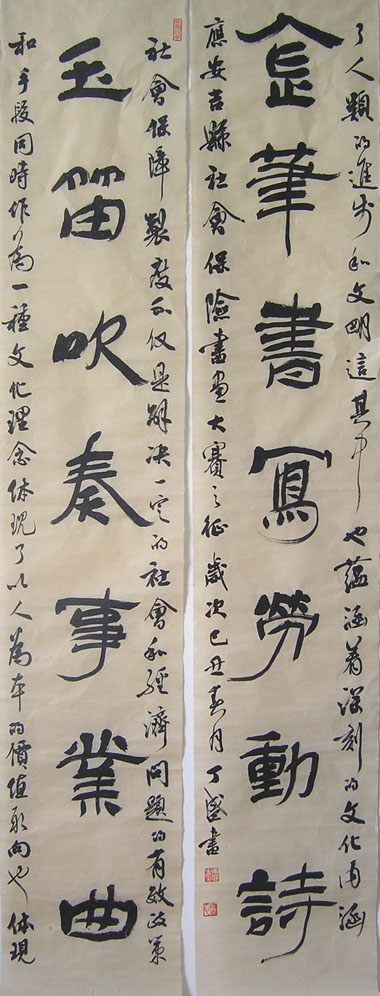 金筆書寫勞動詩
玉笛吹奏事業曲
社會保障製度不仅是解决一定的社會和經濟問題的有效政策
和手段同時作為一種文化理念体現了以人為本的價值取向也体現
了人類的進步和文明這其中也蕴涵着深刻的文化内涵
應安吉縣社會保險書畫大賽之征歲次己丑春月丁盛書